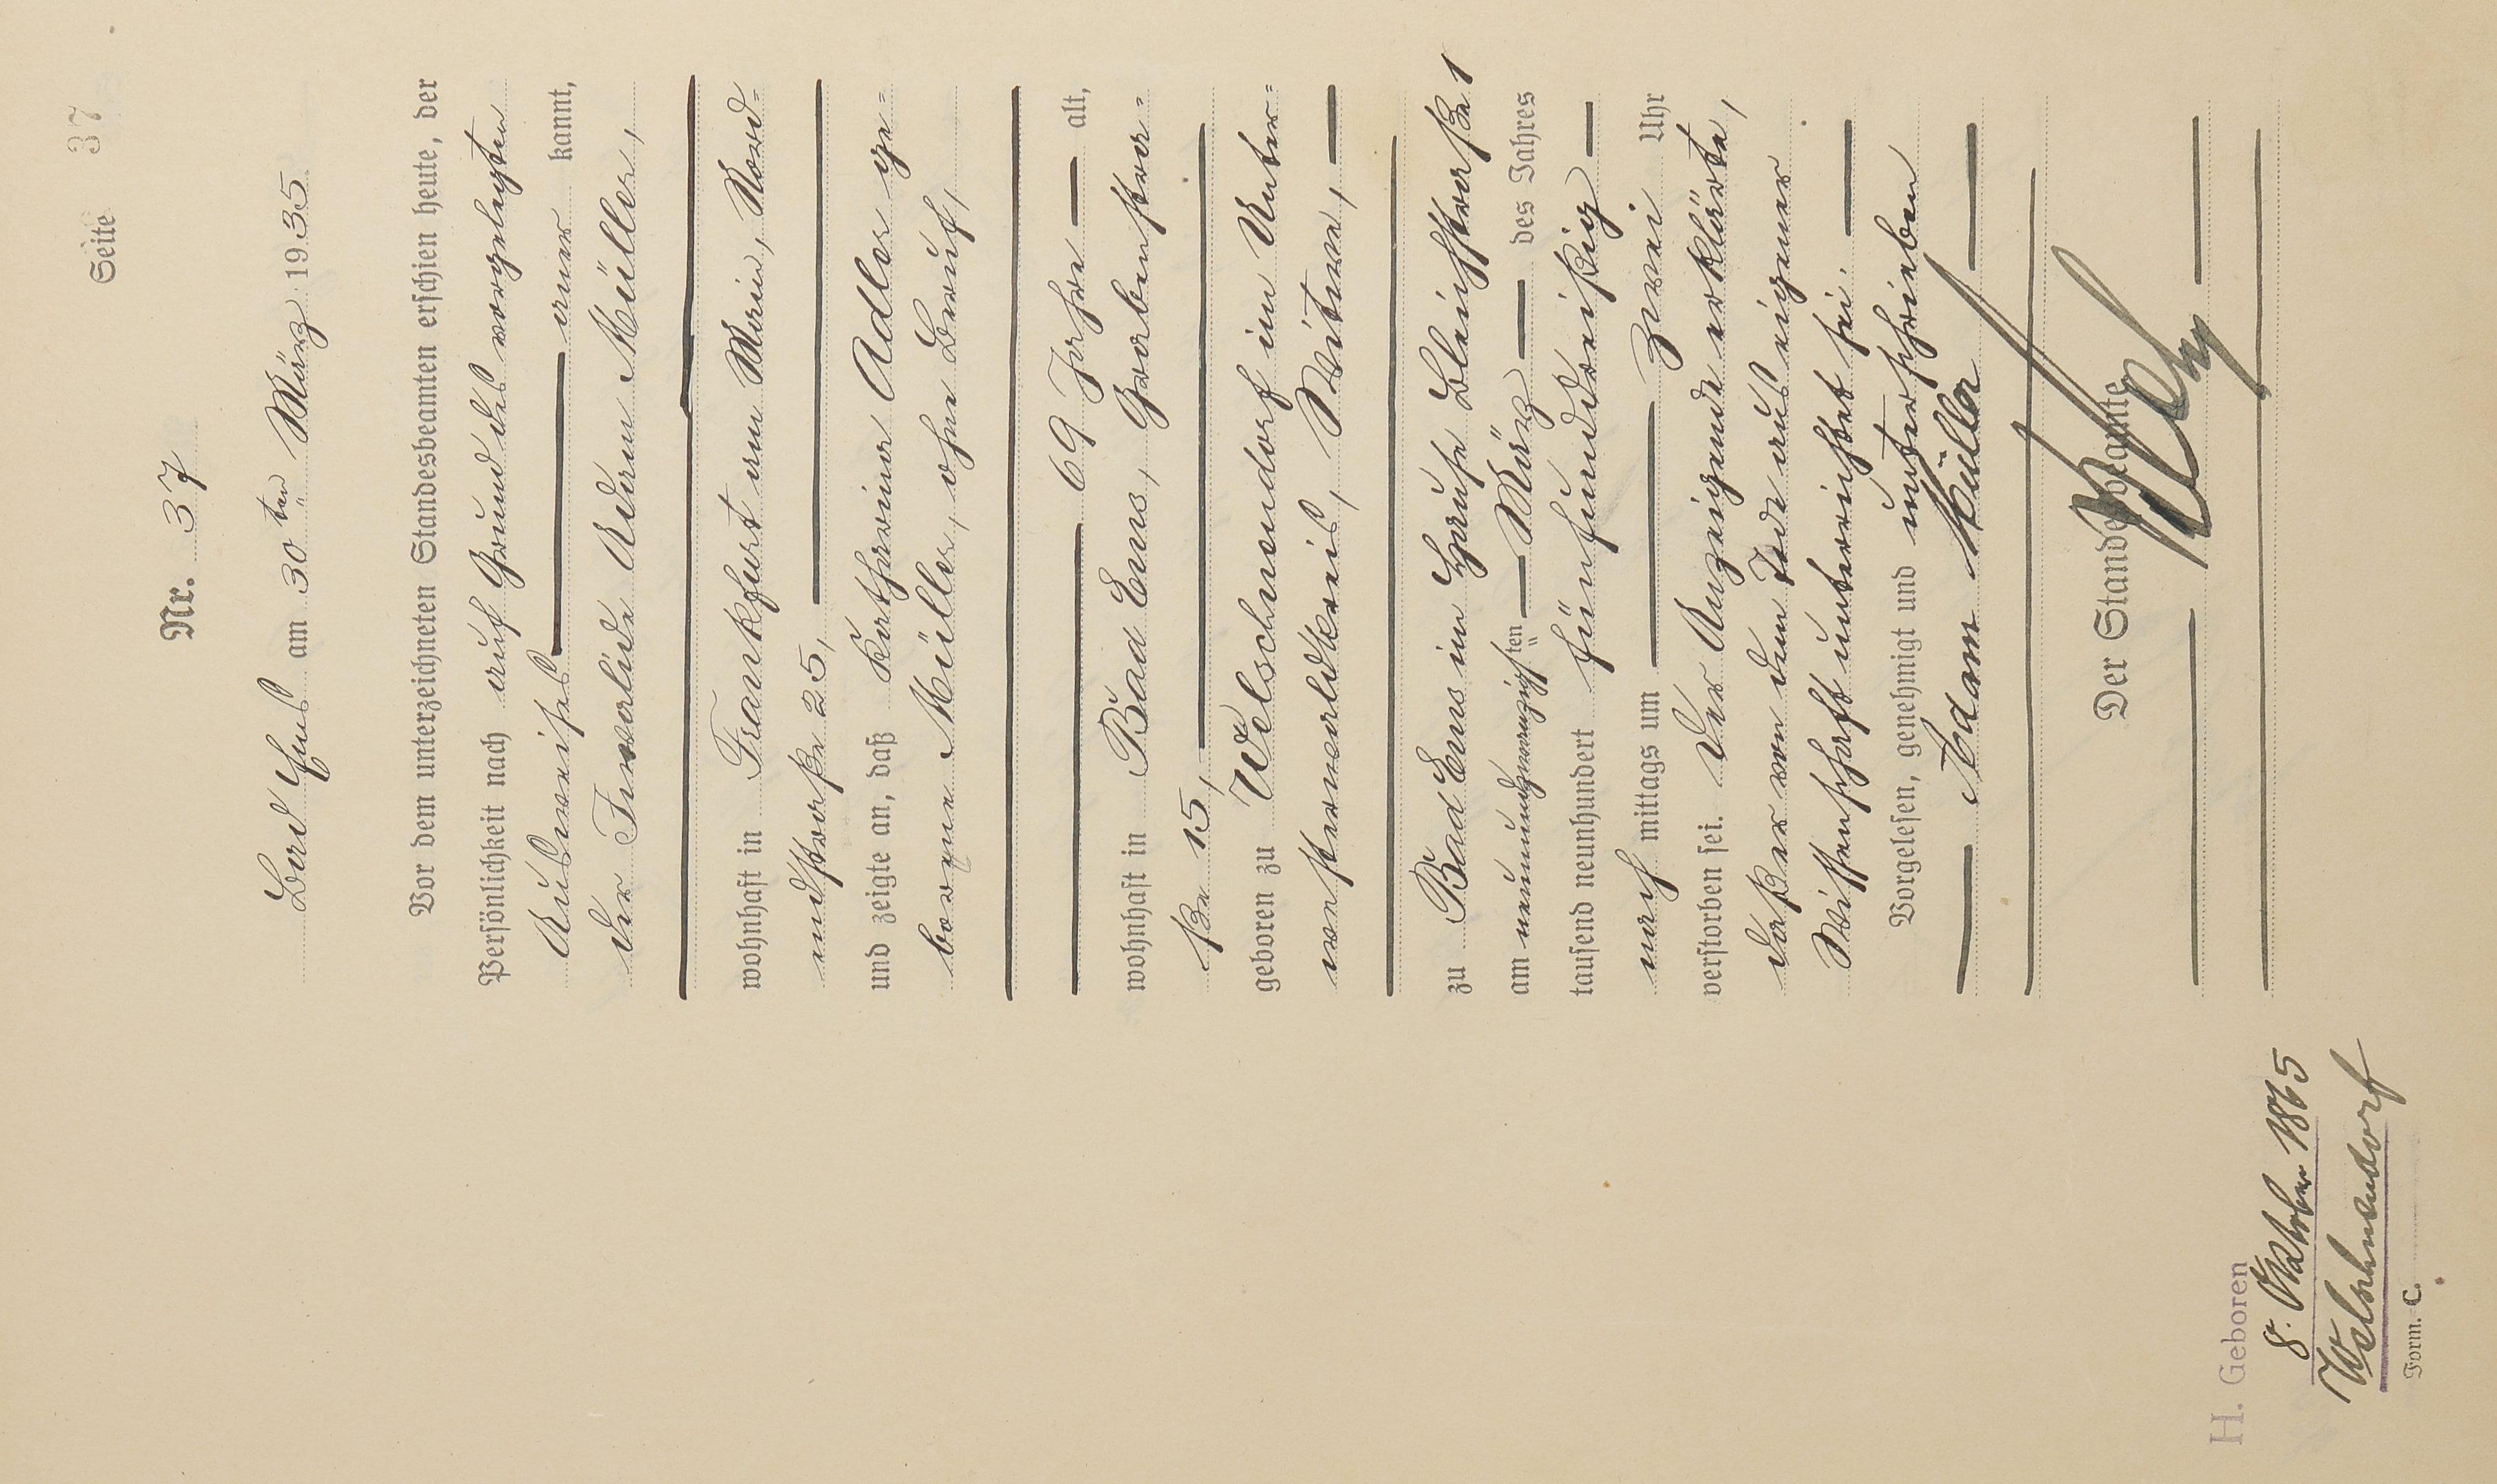 Seite 37
Nr. 37
Bad Ems am 30ten März 1935
Vor dem unterzeichneten Standesbeamten erschien heute, der
Persönlichkeit nach auf Grund des vorgelegten
Ausweises — aner kannt,
der Invalide Adam Müller,
wohnhaft in Frankfurt am Main, Nord=
endstraße 25,
und zeigte an, daß Katharina Adler ge=
borene Müller, ohne Beruf,
69 Jahre — alt,
wohnhaft in Bad Ems, Grabenstra=
ße 15,
geboren zu Welschneudorf im Unter=
westerwaldkreis, Witwe,
zu Bad Ems im Hause Bleichstraße 1
am neunundzwanzigsten März des Jahres
tausend neunhundert fünfunddreißig
nach mittags um zwei Uhr
verstorben sei. Der Anzeigende erklärte,
daß er von dem Tode aus eigener
Wissenschaft unterrichtet sei.
Vorgelesen, genehmigt und unterschrieben
Adam Müller
Der Standesbeamte
H. Geboren
8. Oktober 1865
Welschneudorf
Form. C.